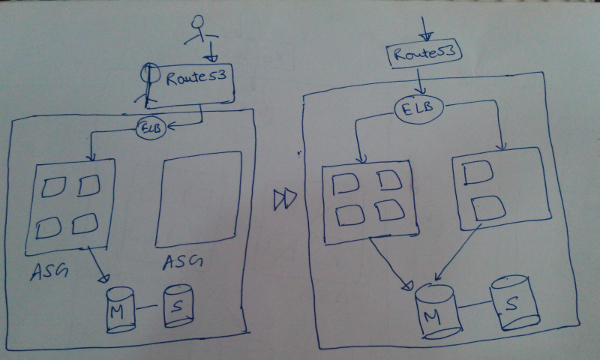 Route53
ELB
ASG
ASG
M
S
Route53
ELB
M
S